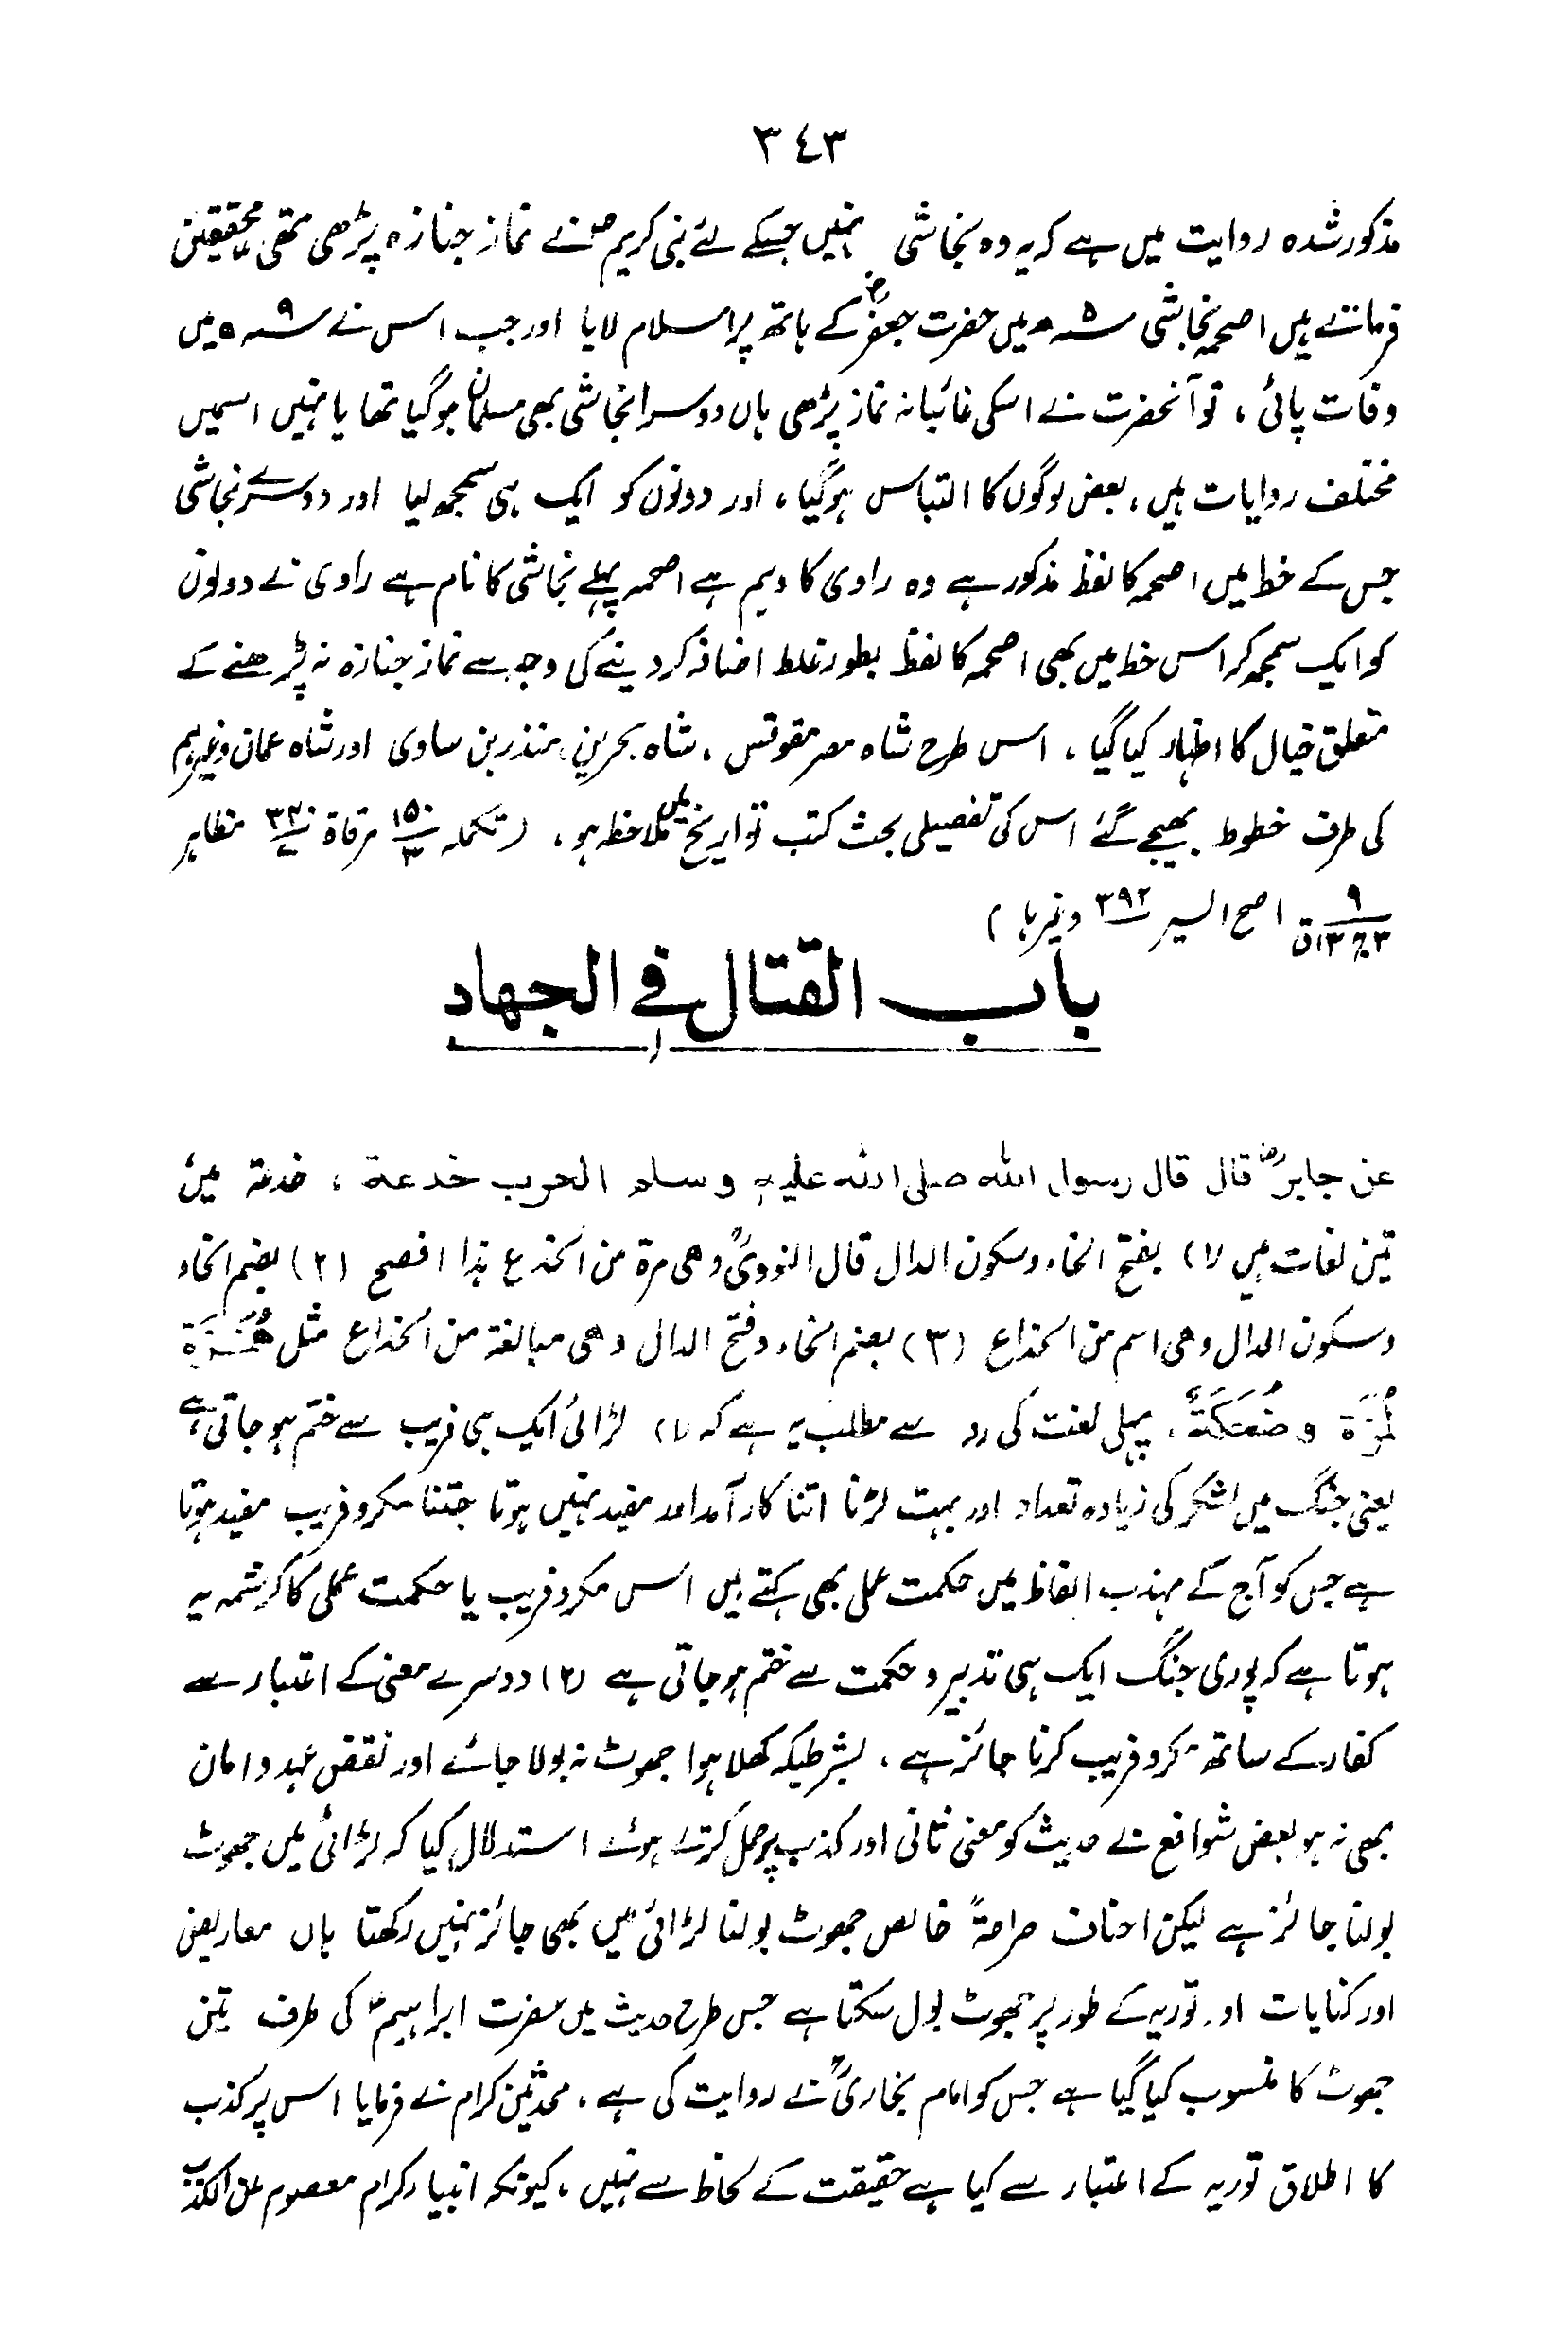 ٣٤٣
مذکور شدہ روایت میں ہے کہ یہ وہ نجاشی نہیں جسکے لئے نبی کریم ﷺ نے نماز جنازہ پڑھی تھی محققین
فرماتے ہیں اصحمہ نجاشی ۵ھ میں حضرت جعفرؓ کے ہاتھ پر اسلام لایا اور جب اس نے ۹ھ میں
وفات پائی، تو آنحضرت نے اسکی غائبانہ نماز پڑھی ہاں دوسرا نجاشی بھی مسلمان ہوگیا تھا یا نہیں اسمیں
مختلف روایات ہیں، بعض لوگوں کا التباس ہوگیا، اور دونوں کو ایک ہی سمجھ لیا اور دوسرے نجاشی
جس کے خط میں اصحمہ کا لفظ مذکور ہے وہ راوی کا وہم ہے اصحمہ پہلے نجاشی کا نام ہے راوی نے دونوں
کو ایک سمجھ کر اس خط میں بھی اصحمہ کا لفظ بطور غلط اضافہ کردینے کی وجہ سے نماز جنازہ نہ پڑھنے کے
متعلق خیال کا اظہار کیا گیا، اس طرح شاہ مصر مقوقس، شاہ بحرین منذر بن ساوی اور شاہ عمان وغیرہم
کی طرف خطوط بھیجے گئے اس کی تفصیلی بحث کتب تواریخ میں ملاحظہ ہو، (تکملہ ۱۵۰/۳ مرقاۃ مظاہر
اصح السیر ۳۹۲ وغیرہا)
باب القتال فی الجہاد
عن جابرؓ قال قال رسول اللہ صلی اللہ علیہ وسلم الحرب خدعة، خدعۃ میں
تین لغات ہیں (۱) بفتح الخاء وسکون الدال قال النوویؒ وھی مرۃ من الخدع ہذا افصح (۲) بضم الخاء
وسکون الدال وھی اسم من الخداع (۳) بضم الخاء وفتح الدال وھی مبالغۃ من الخداع مثل ھُمَزَۃ
لُمَزَۃ وضُحَکَۃٌ، پہلی لغت کی رو سے مطلب یہ ہے کہ (۱) لڑائی ایک ہی فریب سے ختم ہوجاتی ہے
یعنی جنگ میں لشکر کی زیادہ تعداد اور بہت لڑنا اتنا کارآمد اور مفید نہیں ہوتا جتنا مکروفریب مفید ہوتا
ہے جس کو آج کے مہذب الفاظ میں حکمت عملی بھی کہتے ہیں اس مکروفریب یا حکمت عملی کا کرشمہ یہ
ہوتا ہے کہ پوری جنگ ایک ہی تدبیر و حکمت سے ختم ہوجاتی ہے (۲) دوسرے معنی کے اعتبار سے
کفار کے ساتھ مکروفریب کرنا جائز ہے، بشرطیکہ کھلا ہوا جھوٹ نہ بولا جائے اور نقض عہد و امان
بھی نہ ہو بعض شوافع نے حدیث کو معنی ثانی اور کذب پر حمل کرتے ہوئے استدلال کیا کہ لڑائی میں جھوٹ
بولنا جائز ہے لیکن احناف صراحۃً خالص جھوٹ بولنا لڑائی میں بھی جائز نہیں رکھتا ہاں معاریض
اور کنایات اور توریہ کے طور پر جھوٹ بول سکتا ہے جس طرح حدیث میں حضرت ابراہیمؑ کی طرف تین
جھوٹ کا منسوب کیا گیا ہے جس کو امام بخاریؒ نے روایت کی ہے، محدثین کرام نے فرمایا اس پر کذب
کا اطلاق توریہ کے اعتبار سے کیا ہے حقیقت کے لحاظ سے نہیں، کیونکہ انبیاء کرام معصوم عن الکذب